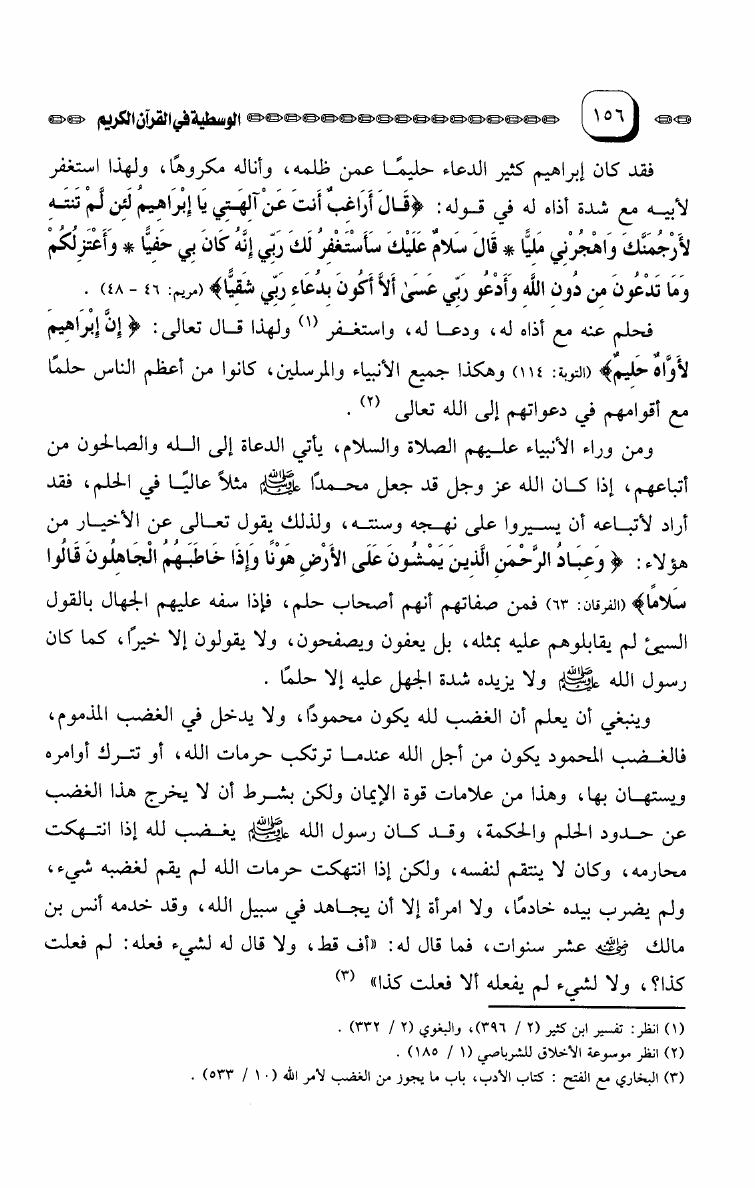 ١٥٦ الوسطية في القرآن الكريم
فقد كان إبراهيم كثير الدعاء حليمًا عمن ظلمه، وأناله مكروهًا، ولهذا استغفر
لأبيه مع شدة أذاه له في قوله: ﴿قَالَ أَرَاغِبٌ أَنتَ عَنْ آلِهَتِي يَا إِبْرَاهِيمُ لَئِن لَّمْ تَنتَهِ
لأَرْجُمَنَّكَ وَاهْجُرْنِي مَلِيًّا * قَالَ سَلامٌ عَلَيْكَ سَأَسْتَغْفِرُ لَكَ رَبِّي إِنَّهُ كَانَ بِي حَفِيًّا * وَأَعْتَزِلُكُمْ
وَمَا تَدْعُونَ مِن دُونِ اللَّهِ وَأَدْعُو رَبِّي عَسَىٰ أَلاَّ أَكُونَ بِدُعَاءِ رَبِّي شَقِيًّا﴾ (مريم: ٤٦ - ٤٨) .
فحلم عنه مع أذاه له، ودعا له، واستغفر (١) ولهذا قال تعالى: ﴿ إِنَّ إِبْرَاهِيمَ
لأَوَّاهٌ حَلِيمٌ﴾ (التوبة: ١١٤) وهكذا جميع الأنبياء والمرسلين، كانوا من أعظم الناس حلمًا
مع أقوامهم في دعواتهم إلى الله تعالى (٢) .
ومن وراء الأنبياء عليهم الصلاة والسلام، يأتي الدعاة إلى الله والصالحون من
أتباعهم، إذا كان الله عز وجل قد جعل محمدًا ﷺ مثلاً عاليًا في الحلم، فقد
أراد لأتباعه أن يسيروا على نهجه وسنته، ولذلك يقول تعالى عن الأخيار من
هؤلاء: ﴿ وَعِبَادُ الرَّحْمَنِ الَّذِينَ يَمْشُونَ عَلَى الأَرْضِ هَوْنًا وَإِذَا خَاطَبَهُمُ الْجَاهِلُونَ قَالُوا
سَلامًا﴾ (الفرقان: ٦٣) فمن صفاتهم أنهم أصحاب حلم، فإذا سفه عليهم الجهال بالقول
السيئ لم يقابلوهم عليه بمثله، بل يعفون ويصفحون، ولا يقولون إلا خيرًا، كما كان
رسول الله ﷺ ولا يزيده شدة الجهل عليه إلا حلمًا .
وينبغي أن يعلم أن الغضب لله يكون محمودًا، ولا يدخل في الغضب المذموم،
فالغضب المحمود يكون من أجل الله عندما ترتكب حرمات الله، أو تترك أوامره
ويستهان بها، وهذا من علامات قوة الإيمان ولكن بشرط أن لا يخرج هذا الغضب
عن حدود الحلم والحكمة، وقد كان رسول الله ﷺ يغضب لله إذا انتهكت
محارمه، وكان لا ينتقم لنفسه، ولكن إذا انتهكت حرمات الله لم يقم لغضبه شيء،
ولم يضرب بيده خادمًا، ولا امرأة إلا أن يجاهد في سبيل الله، وقد خدمه أنس بن
مالك رضي الله عنه عشر سنوات، فما قال له: «أف قط، ولا قال له لشيء فعله: لم فعلت
كذا؟، ولا لشيء لم يفعله ألا فعلت كذا» (٣)
(١) انظر: تفسير ابن كثير (٢ / ٣٩٦)، والبغوي (٢ / ٣٣٢) .
(٢) انظر موسوعة الأخلاق للشرباصي (١ / ١٨٥) .
(٣) البخاري مع الفتح : كتاب الأدب، باب ما يجوز من الغضب لأمر الله (١٠ / ٥٣٣) .